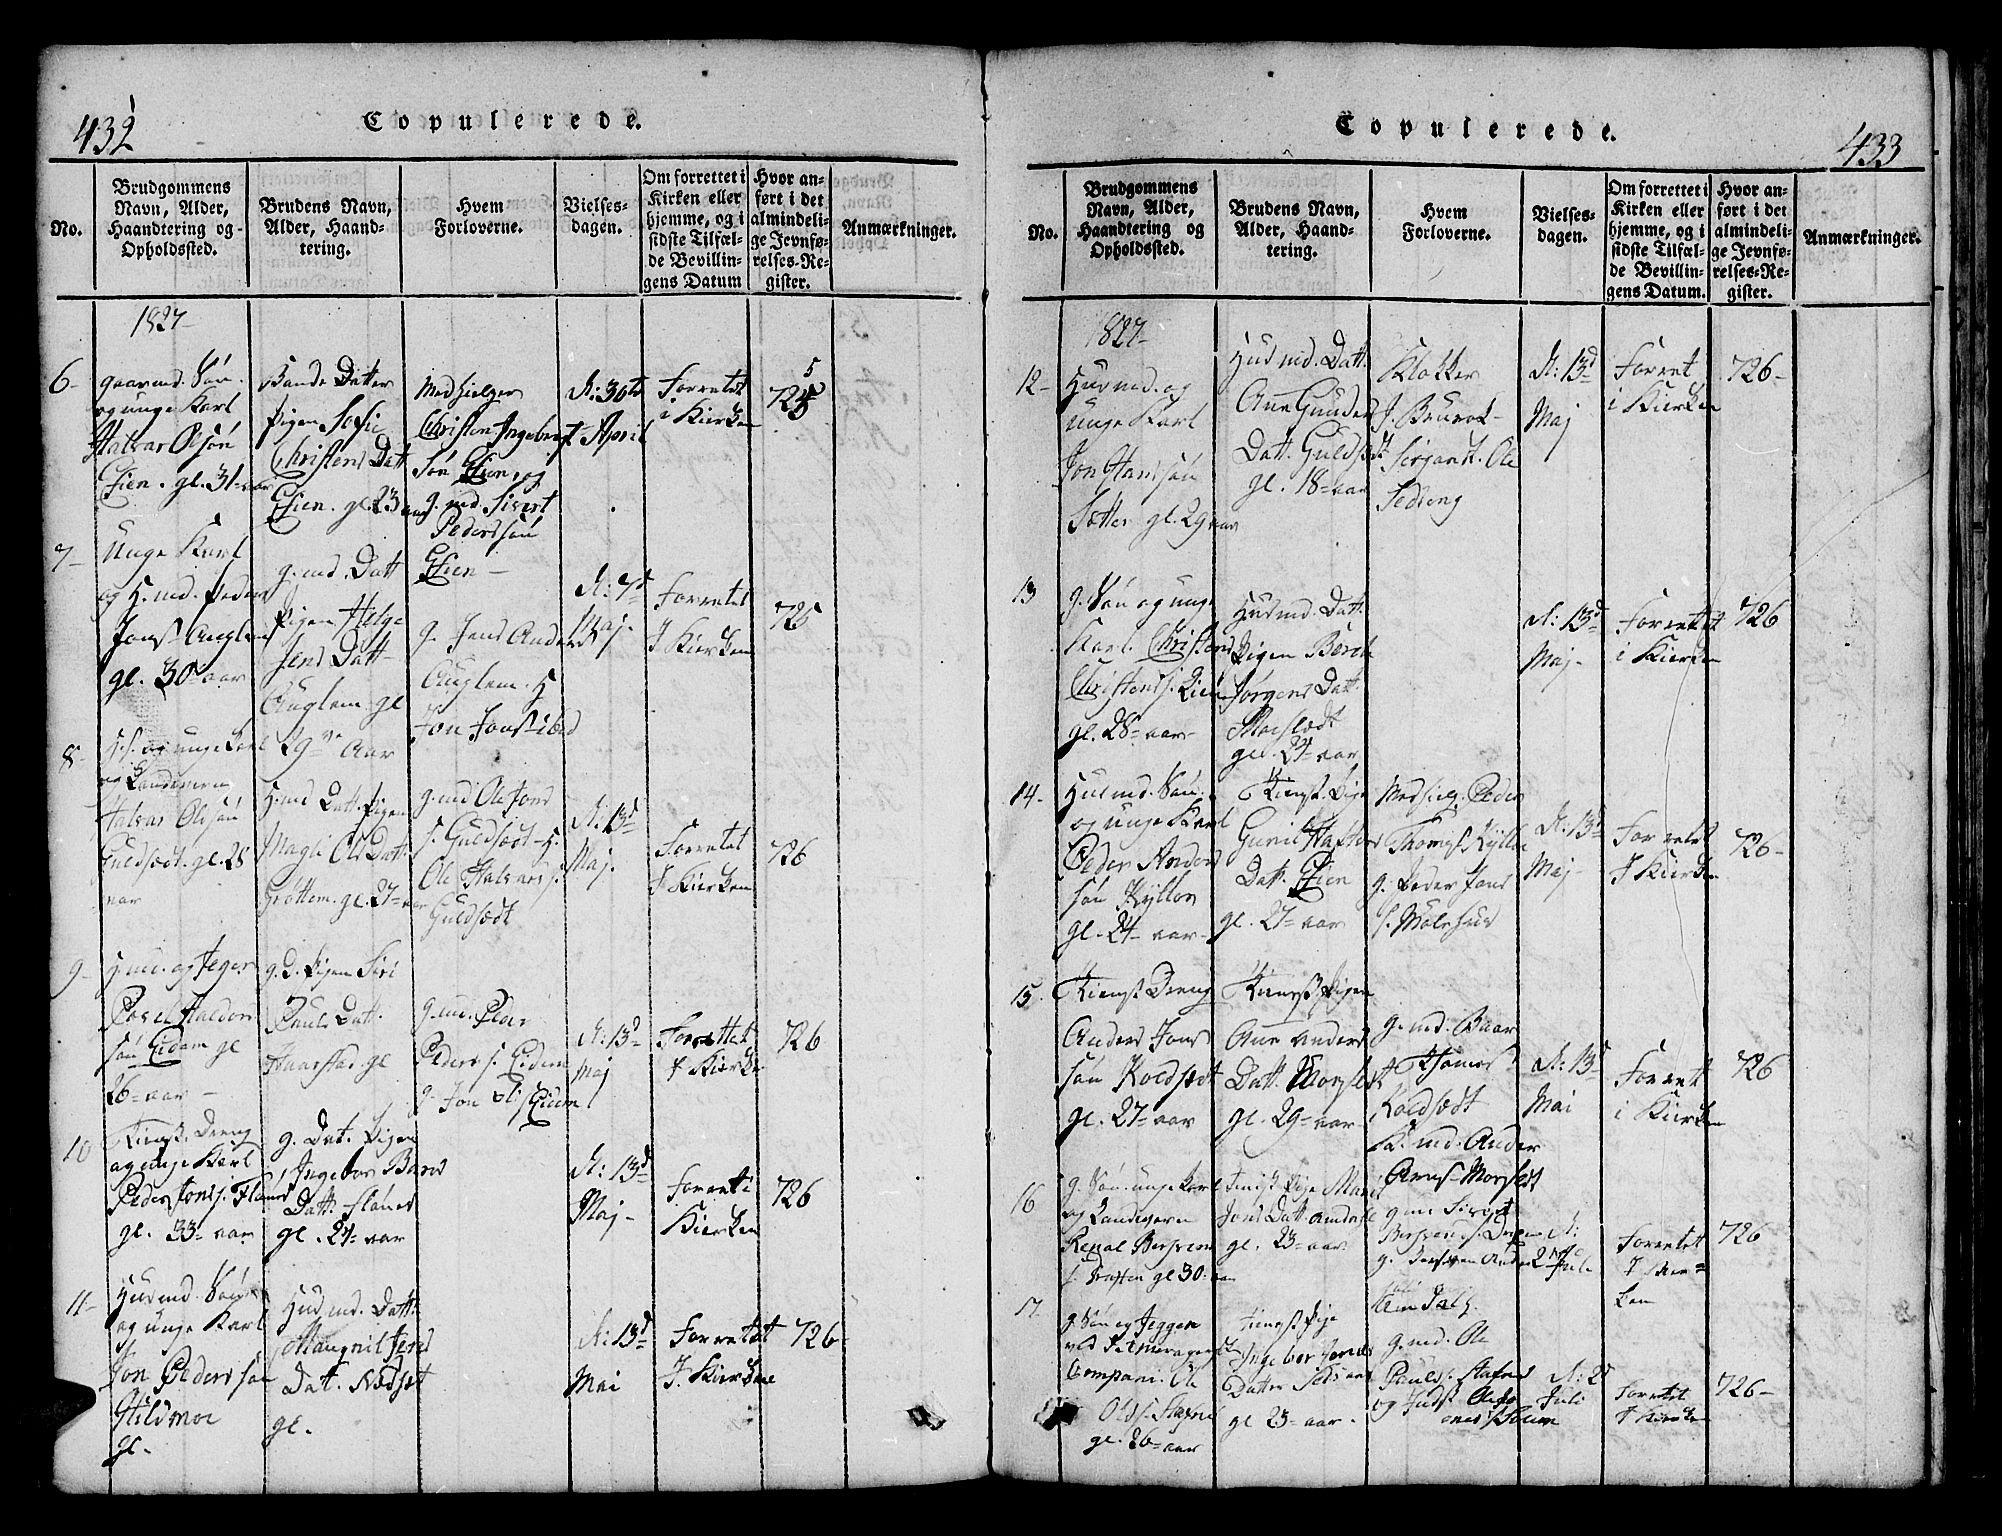 432
Copulerede.
No.
Brudgommens
Navn, Alder,
Haandtering og
Opholdssted.
Brudens Navn,
Alder, Haand-
tering.
Hvem
Forloverne.
Vielses-
dagen.
Om forrettet i
Kirken eller
hjemme, og i
sidste Tilfæl-
de Bevillin-
gens Datum
Hvor an-
ført i det
almindeli-
ge Jevnfø-
relses-Re-
gister.
Anmærkninger.
1827
6-
gaarmd. Søn.
og unge Karl
Halvar Olsøn
Eien. gl. 31 aar
Bande Datter
Pigen Sofie
Christens Datt
Eien. gl. 23 aar
Medhielper
Christen Ingebrigt
Søn Eien og
g. md. Sivert
Pedersøn
Eien-
d: 30te
April
Forrettet
i Kierken
725
7-
Unge Karl
og H. md. Peder
Jons. Auglem
gl. 30 aar
g. md. Datt
Pigen Helge
Jens Datt
Auglem gl
29 Aar
g. Jens Anders
Auglem. H
Jon Jons
d: 7d
Maj-
Forrettet
I Kierken
725
8-
og unge Karl
og Landevern
Halvar Olsøn
Guldsædt. gl. 28
aar
H. md Datt. Pigen
Magli Ols Datt
Grøttem. gl. 27 aar
g. md Ole Jons
s. Guldsædt - H.
Ole Halvars s.
Guldsædt
d: 13d
Maj.
Forrettet
I Kierken
726
9-
H. md. og Jeger
Povel Haldor
søn Eidem gl
26 aar -
g. D. Pigen Siri
Pauls Dat.
Haarstad gl
g. md. Peder
Peders s. Eidem
g. Jon Ols Eidem
d: 13d
Maj
Forrettet
I Kierken
726
10
Tienst. Dreng
og unge Karl
Peder Jons s. Flønes
gl. 33 aar
g. Dat. Pigen
Ingebor Bards
Datt. Flønes
gl. 24 aar
d: 13d
Maj-
Forret i
Kierken
726
11-
Husmd. Søn
og unge Karl
Jon Peders søn
Hildmoe
gl.
Husmd. Datt.
Mangnil Jens
Dat. Nædset
gl.
d: 13d
Mai
Forrettet
I Kierken
726-
433
Copulerede.
No.
Brudgommens
Navn, Alder,
Haandtering og
Opholdssted.
Brudens Navn,
Alder, Haand-
tering.
Hvem
Forloverne.
Vielses-
dagen.
Om forrettet i
Kirken eller
hjemme, og i
sidste Tilfæl-
de Bevillin-
gens Datum.
Hvor an-
ført i det
almindeli-
ge Jevnfø-
relses-Re-
gister.
Anmærkninger.
1827-
12-
Husmd. og
Unge Karl
Jon Hanssøn
Sætter gl. 29 aar
Husmd. Datt.
Ane Gunder
Datt. Guldsædt
gl. 18 aar
Klokker
J. Bruvok-
Serjant. Ole
d: 13d
Maj
Forret
i Kierken
726-
13
g. Søn og unge
Karl. Christen
Christens s.
gl. 28 aar-
Husmd. Datt.
Pigen Beret
Jørgens Datt.
Morsædt
gl. 24 aar
d: 13d
Maj-
Forrettet
i Kierken
726
14-
Husmd. Søn.
og unge Karl
Peder Anders
søn Kyllo
gl. 24 aar-
Tienst. Pige
Gunil Halfors
Datt. Eien
gl. 27 aar
Medhielp. Peder
Thomes Kylloe
g. Peder Jons
s. Mølehus
d: 13d
Maj-
Forrettet
I Kierken
726-
15.
Tienst Dreng
Anders Jons
søn Koldsædt
gl. 27 aar
Tienst Pigen
Ane Anders
Datt. Morsedt
gl. 29 aar
g. md. Baar
Thomes
Koldsædt
H. md. Anders
Arens. Morsledt
d: 13d
Mai
Forret
i Kierken
726
16
g. Søn. unge karl
og Landevern
Renal Bersven
s. gl 30. aar
Tienst Pige Marit
Jons Datt. Amdal
gl. 23 aar
g. m. Sivert
Bersvens s.
g. Bersven Anders
d:
2 Juli
Forrettet
I Kier=
ken
726
17.
g. Søn og Jegger
ved
Compani. Ole
Ols s. Stafne
gl. 26 aar
tienst Pige
Ingebor Jons
Datter
gl 23 aar.
g. md. Ole
Pauls s. Stafne
d: 2d
Juli
Forrettet
I Kierken
726-